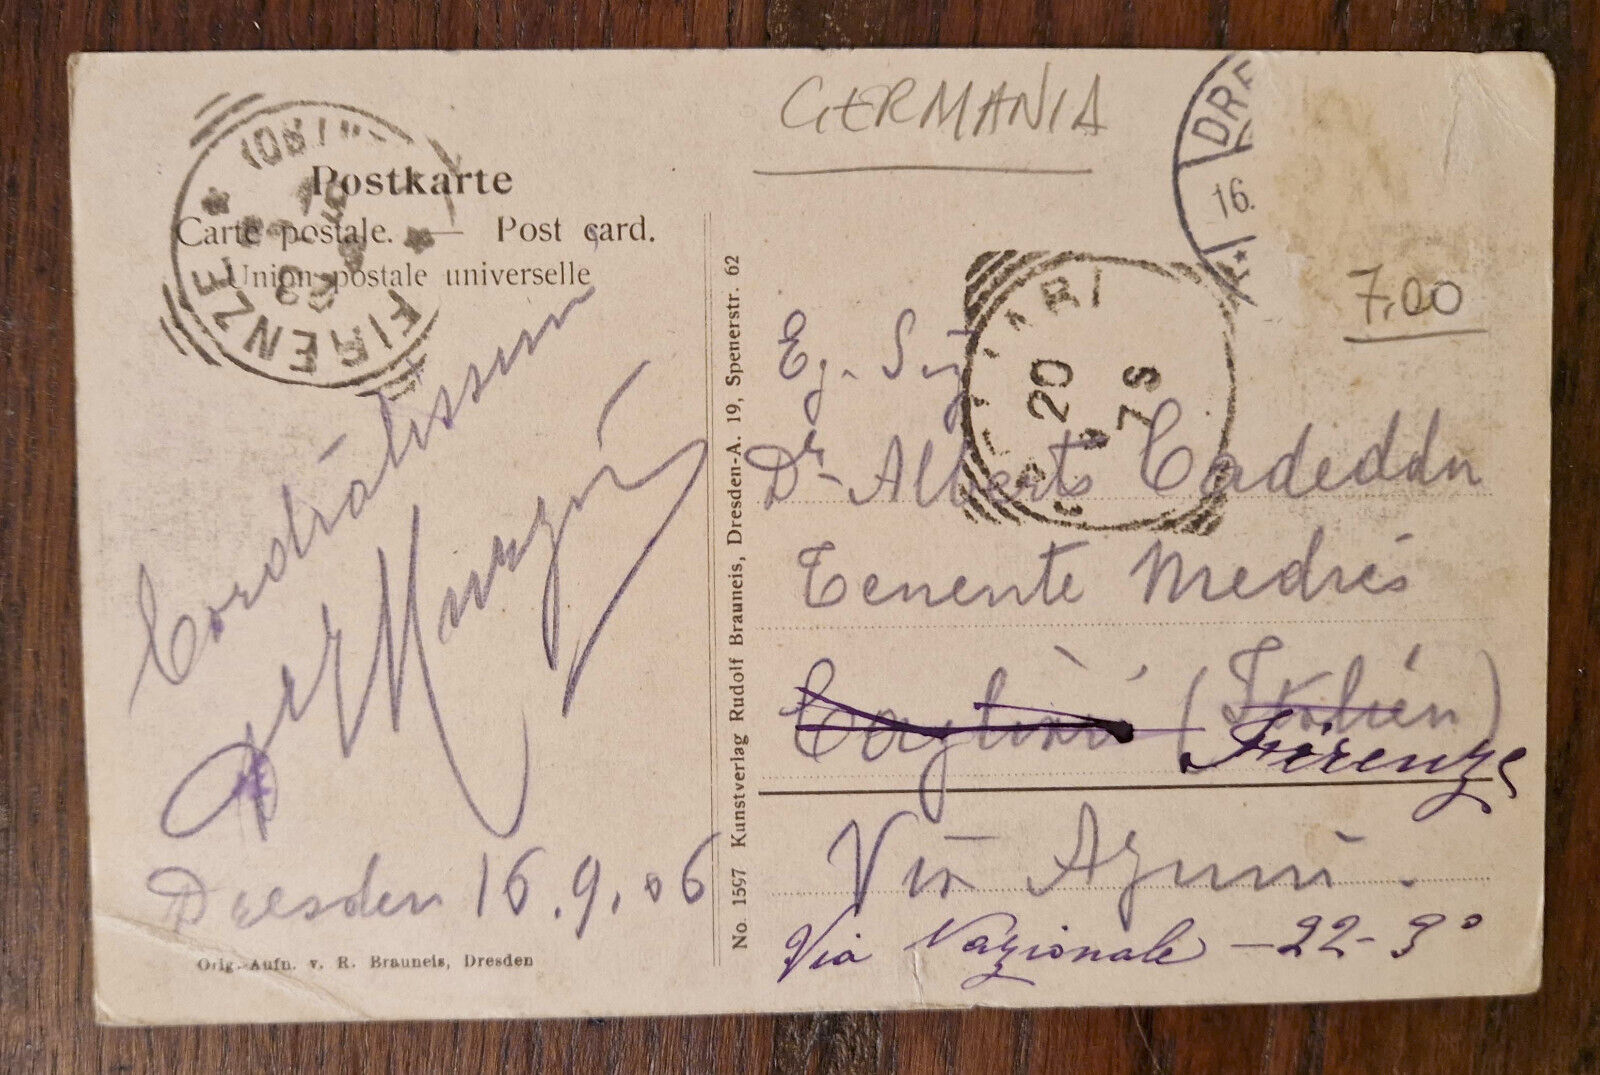 GERMANIA
DRE
16.
7,00
Postkarte
Carte postale. — Post card.
Union postale universelle
FIRENZE
20
7S
Eg. Sig
Dr Alberto Cadeddu
Tenente Medico
Cagliari (Italien)
Firenze
Via Azuni.
Via Nazionale - 22 - 3°
Cordialissimi
Dresden 16.9.06
Orig.-Aufn. v. R. Brauneis, Dresden
No. 1597 Kunstverlag Rudolf Brauneis, Dresden-A. 19, Spenerstr. 62